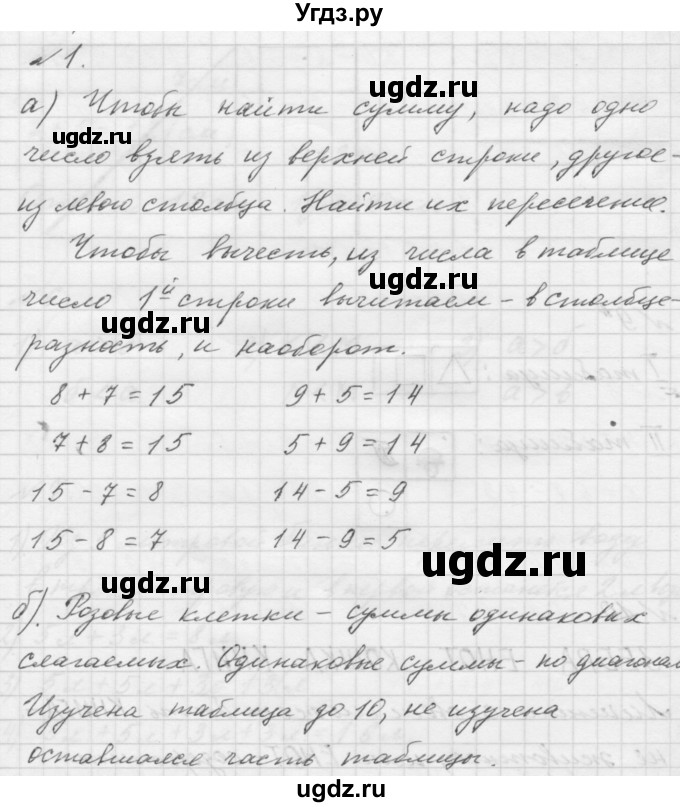 Угдз.ру
№1.
а) Чтобы найти сумму, надо одно
ugdz.ru
ugdz.ru
число взять из верхней строки, другое-
из левого столбца. Найти их пересечение.
ugdz.ru
Чтобы вычесть, из числа в таблице
число 1й строки вычитаем - в столбце-
ugdz.ru
разность, и наоборот.
8 + 7 = 15 9 + 5 = 14
7 + 8 = 15 5 + 9 = 14
15 - 7 = 8 14 - 5 = 9
15 - 8 = 7 14 - 9 = 5
ugdz.ru
б). Розовые клетки - суммы одинаковых
слагаемых. Одинаковые суммы - по диагонал
Изучена таблица до 10, не изучена
оставшаяся часть таблицы.
Угдз.ру